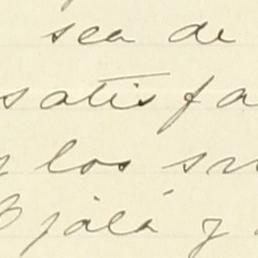 sea de
satisfa
y los
Ojalá y